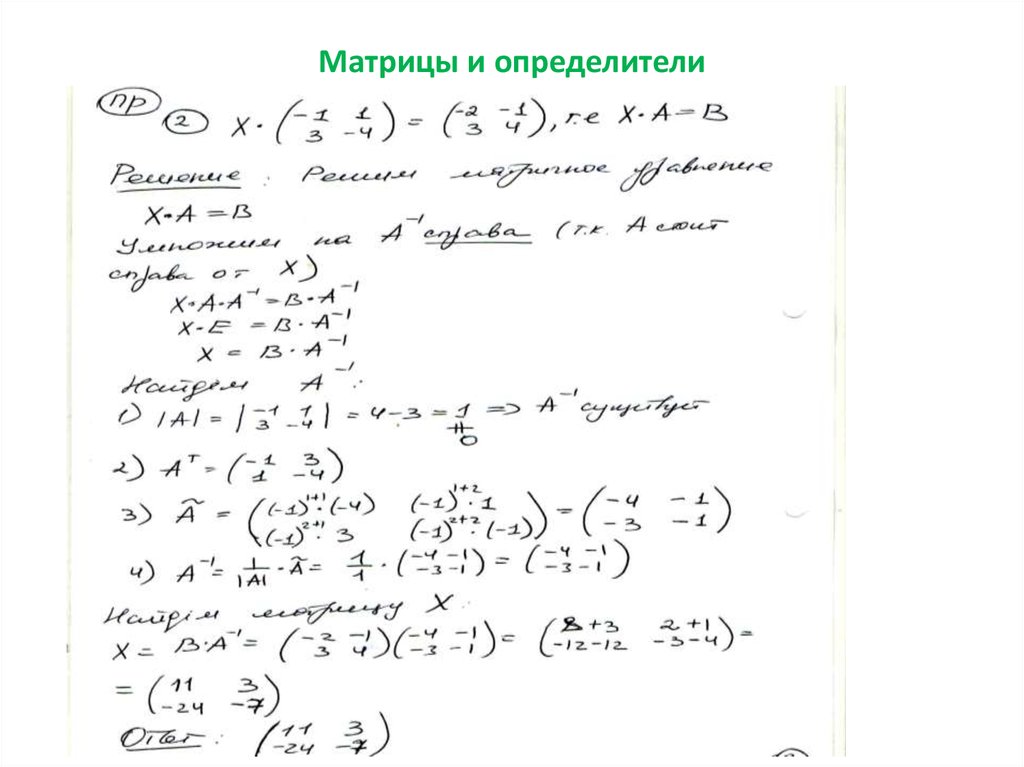 Матрицы и определители
пр
2 X · (-1 1; 3 -4) = (-2 -1; 3 4), т.е X·A=B
Решение: Решим матричное уравнение
X·A=B
Умножим на A⁻¹ справа (т.к. A стоит
справа от X)
X·A·A⁻¹=B·A⁻¹
X·E = B·A⁻¹
X = B·A⁻¹
Найдем A⁻¹:
1) |A| = |-1 1; 3 -4| = 4-3 = 1 ≠ 0 => A⁻¹ существует
2) Aᵀ = (-1 3; 1 -4)
3) Ã = ((-1)¹⁺¹·(-4) (-1)¹⁺²·1; (-1)²⁺¹·3 (-1)²⁺²·(-1)) = (-4 -1; -3 -1)
4) A⁻¹ = 1/|A| · Ã = 1/1 · (-4 -1; -3 -1) = (-4 -1; -3 -1)
Найдём матрицу X:
X = B·A⁻¹ = (-2 -1; 3 4)(-4 -1; -3 -1) = (8+3 2+1; -12-12 -3-4) =
= (11 3; -24 -7)
Ответ: (11 3; -24 -7)